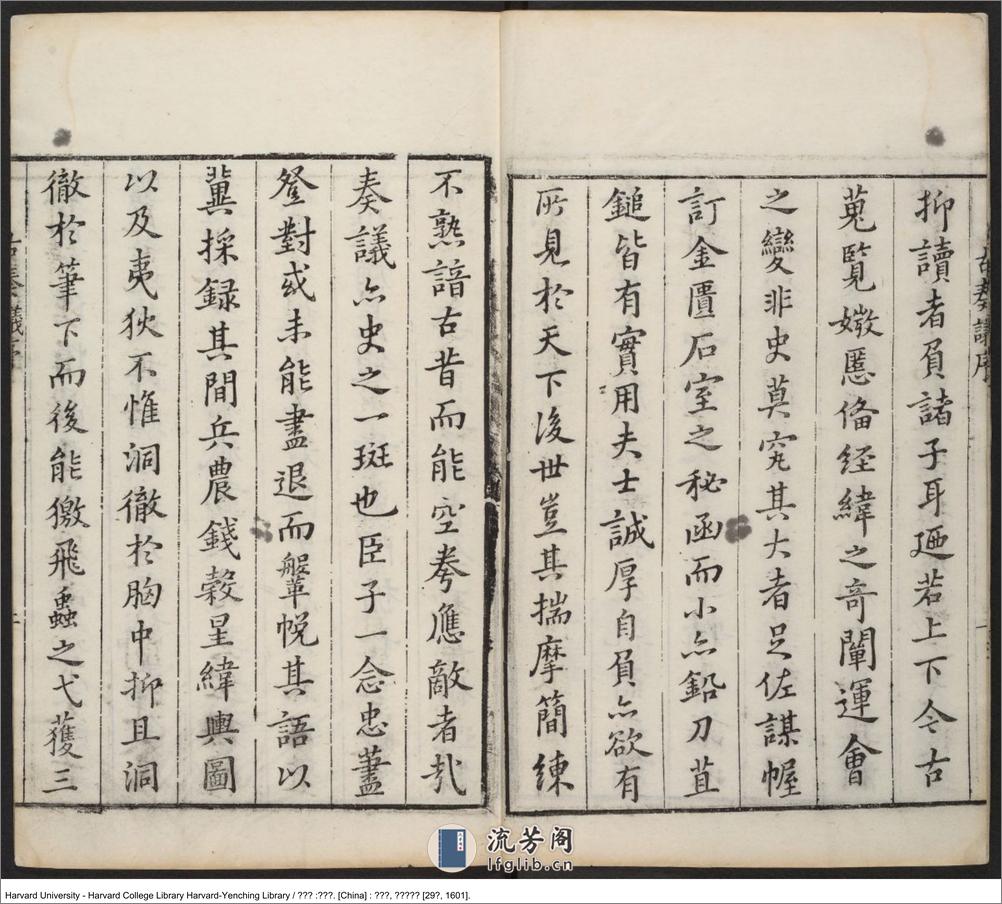 抑讀者負諸子耳廼若上下今古
蒐覽媺慝俻経緯之竒闡運會
之變非史莫究其大者足佐謀幄
訂金匱石室之秘函而小亦鉛刀苴
鎚皆有實用夫士誠厚自負亦欲有
所見於天下後世豈其揣摩簡練
不熟諳古昔而能空拳應敵者㢤
奏議亦史之一斑也臣子一念忠藎
登對或未能盡退而鞶帨其語以
冀採録其間兵農錢穀星緯輿圖
以及夷狄不惟洞徹於胸中抑且洞
徹於筆下而後能徼飛蟲之弋獲三
古奏議序
流芳阁
lfglib.cn
Harvard University - Harvard College Library Harvard-Yenching Library / ??? :???. [China] : ???, ????? [29?, 1601].